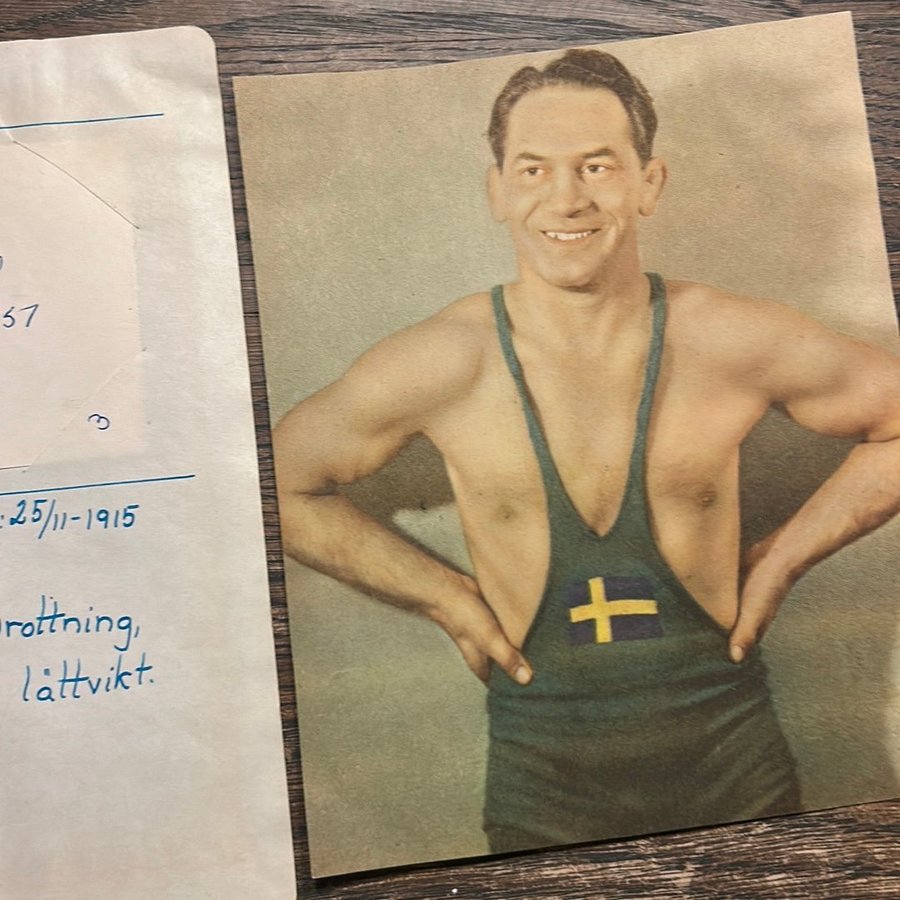 57
3
: 25/11-1915
rottning,
lättvikt.